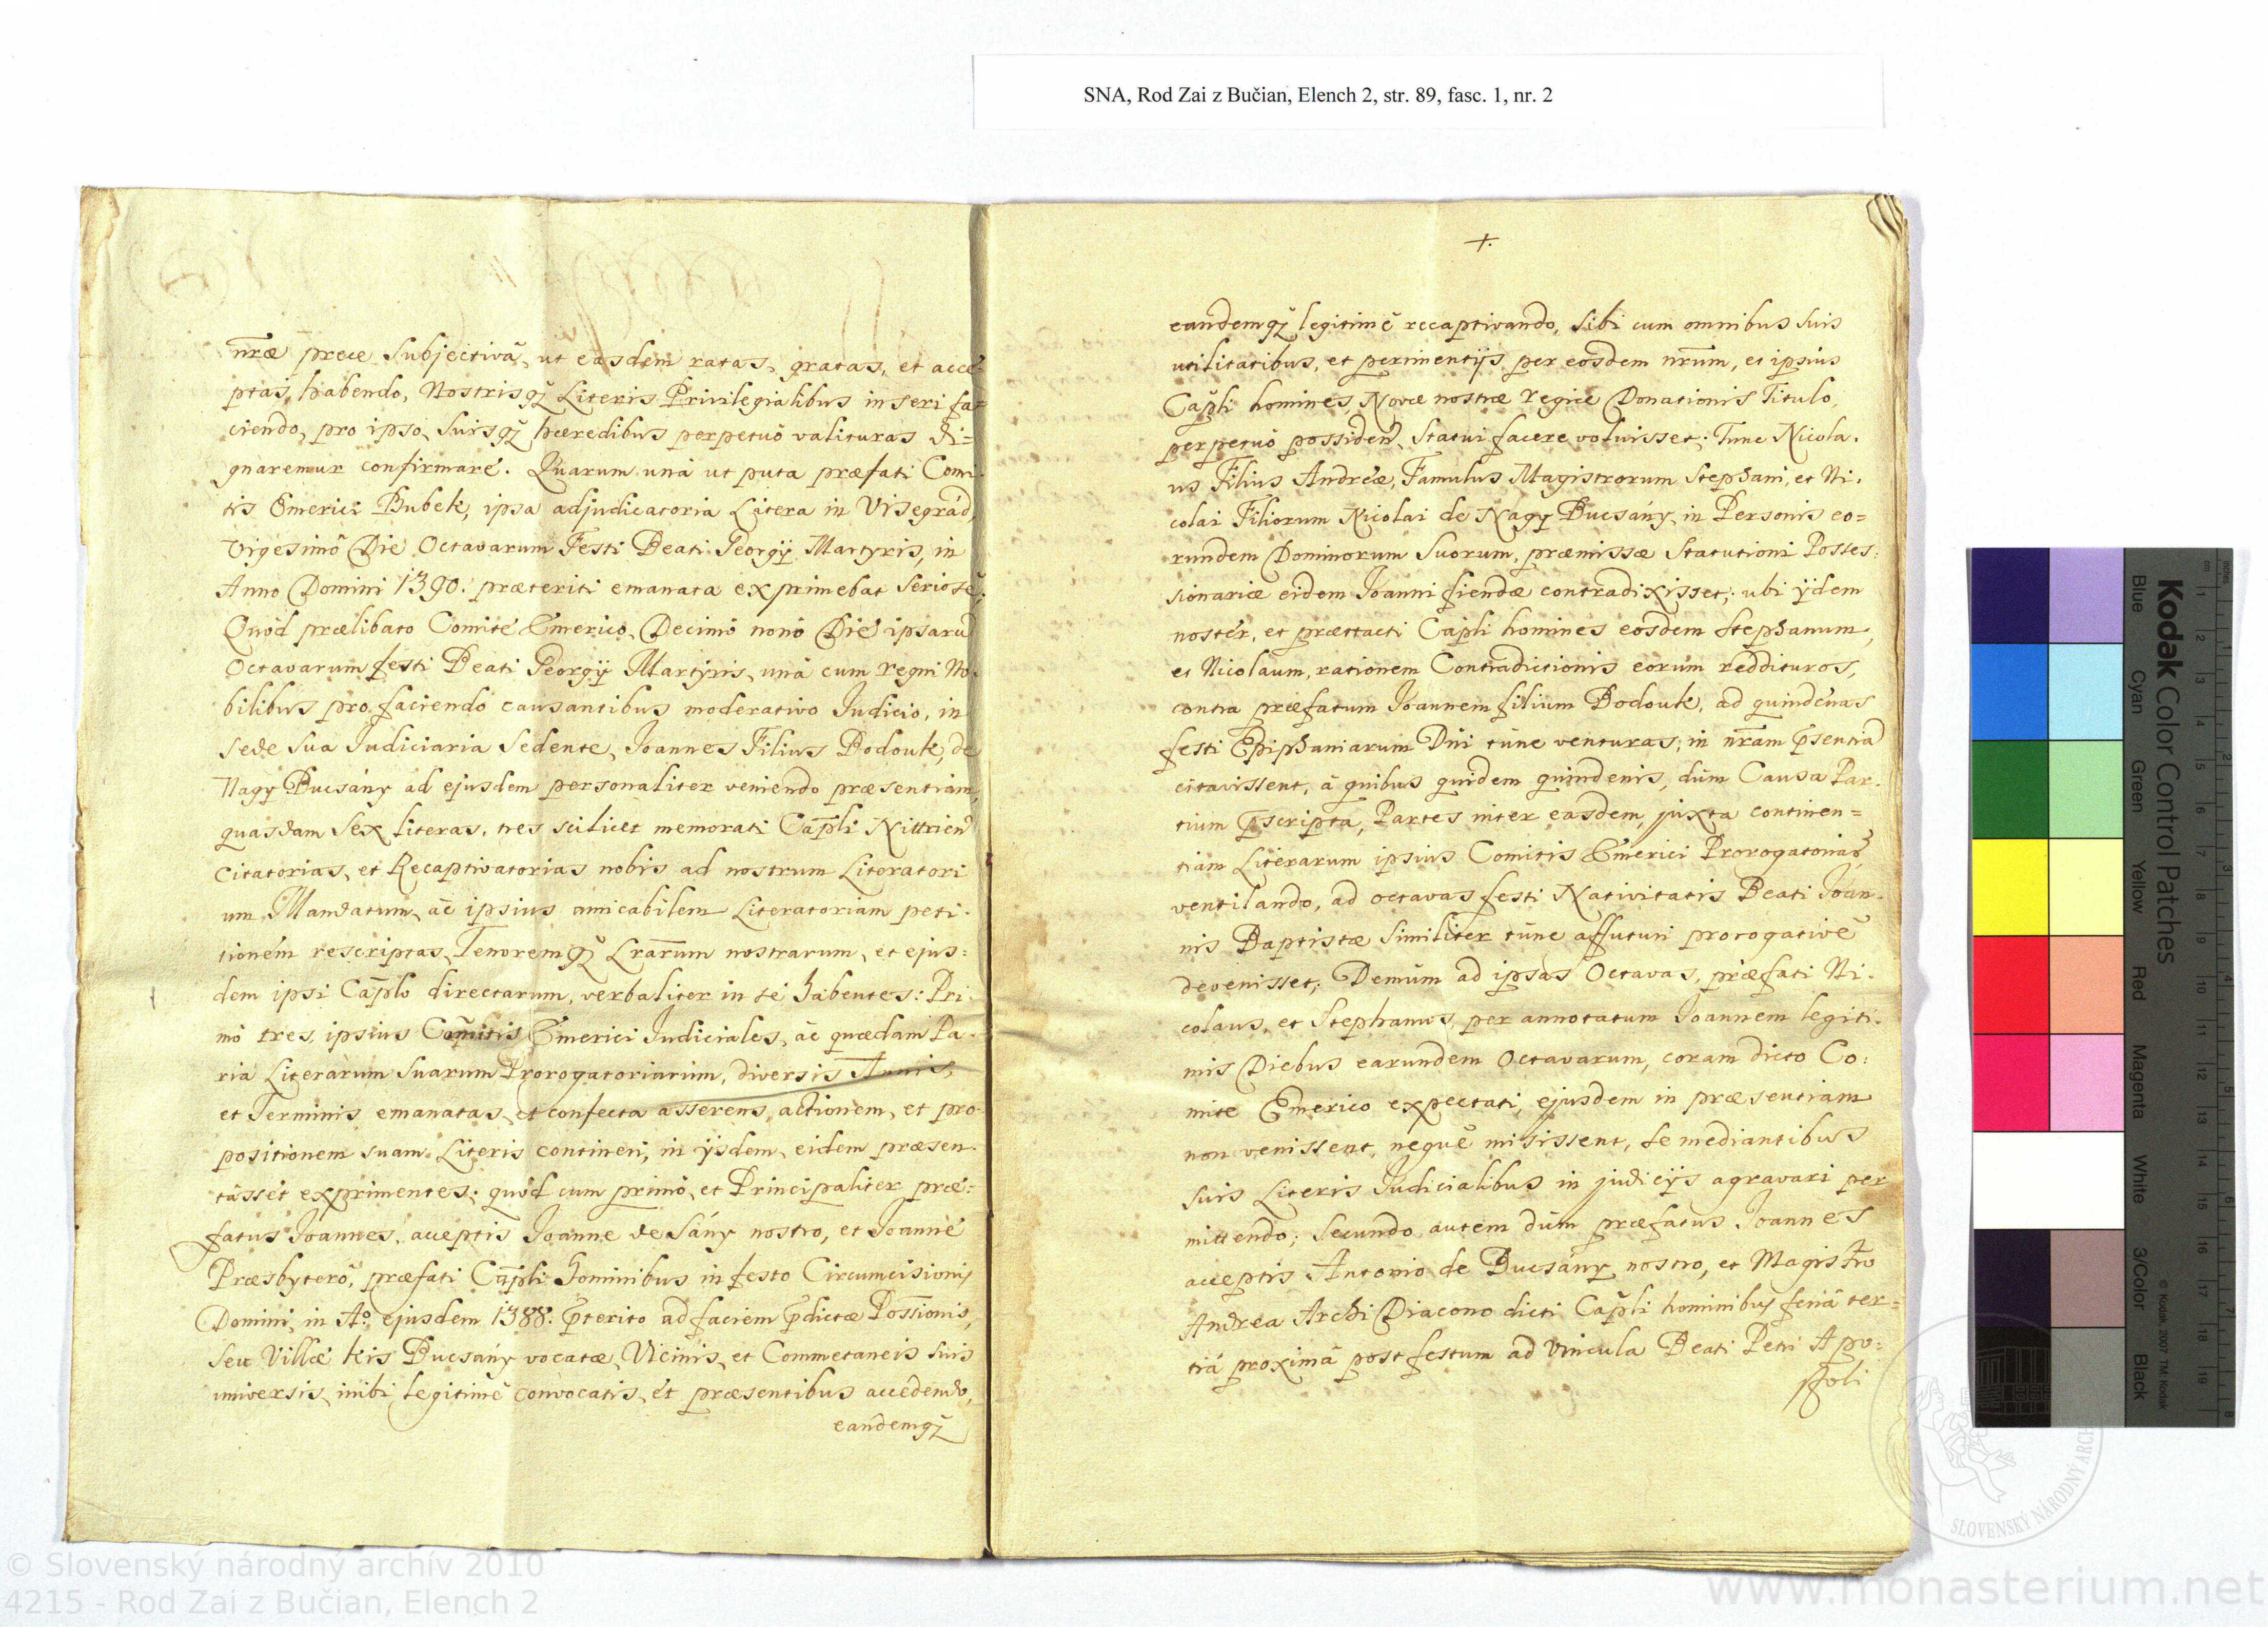 SNA, Rod Zai z Bučian, Elench 2, str. 89, fasc. 1, nr. 2
nr̃æ prece Subjectivâ, ut easdem ratas, gratas, et acce-
ptas, habendo, Nostrisq̃ Literis Privilegialibus inseri fa=
ciendo, pro ipso, Suisq̃ hæredibus perpetuò valituras di=
gnaremur confirmare. Quarum una ut puta præfati Comi
tis Emerici Bubek, ipsa adjudicatoria Litera in Visegrád,
Vigesimô Die Octavarum Festi Beati Georgÿ Martyris, in
Anno Domini 1390. præteriti emanata exprimebat Seriosè;
Quòd prælibato Comite Emerico, Decimô nonô Die ipsarũ
Octavarum festi Beati Georgÿ Martÿris, unà cum regni No-
bilibus pro faciendo causantibus moderativo Judicio, in
Sede Sua Judiciaria Sedente, Joannes Filius Bodouk, de
Nagy Bucsány ad ejusdem personaliter veniendo præsentiam,
quasdam Sex literas, tres scilicet memorati Cap̃li Nittrien̄
Citatorias, et Recaptivatorias nobis ad nostrum Literatori
um Mandatum, ac ipsius amicabilem Literatoriam peti-
tionem rescriptas, Tenoremq̃ Lrãrum nostrarum, et ejus=
dem ipsi Cap̃lo directarum, verbaliter in se habentes: Pri-
mò tres, ipsius Com̃itis Emerici Judiciales, ac quædam Pa-
ria Literarum Suarum Prorogatoriarum, diversis Annis,
et Terminis emanatas, et confecta asserens, actionem, et pro-
positionem suam Literis contineri, in ÿsdem, eidem præsen-
tâsset exprimentes: quòd cum primò, et Principaliter præ=
fatus Joannes, acceptis Joanne de Sány nostro, et Joanne
Præsbyterô, præfati Cap̃li Hominibus in festo Circumcisionis
Domini, in Aᵒ. ejusdem 1388. p̃terito ad faciem p̃dictæ Possĩonis,
Seu Villæ Kis Bucsány vocatæ, Vicinis, et Commetaneis Suis
universis, inibi legitimè convocatis, et præsentibus accedendo,
eandemq̃
+.
eandemq̃ legitimè recaptivando, Sibi cum omnibus Suis
utilitatibus, et pertinentÿs per eosdem nr̃um, et ipsius
Cap̃li homines, Novæ nostræ regiæ Donationis Titulo,
perpetuò possideñ, Statui facere voluisset; Tunc Nicola-
us Filius Andreæ, Famulus Magistrorum Stephani, et Ni-
colai Filiorum Nicolai de Nagy Bucsány, in Personis eo=
rundem Dominorum Suorum, præmissæ Statutioni Posses:
sionariæ eidem Joanni fiendæ contradixisset; ubi ÿdem
noster, et prættacti Cap̃li homines eosdem Stephanum,
et Nicolaum, rationem Contradictionis eorum reddituros,
contra præfatum Joannem filium Bodouk, ad quindenas
festi Epiphaniarum Dñi tunc venturas, in nr̃am p̃sentiã
citavissent, à quibus quidem quindenis, dum Causa Par-
tium p̃scripta, Partes inter easdem, juxta continen=
tiam Literarum ipsius Comitis Emerici Prorogatoriaȓ,
ventilando, ad octavas festi Nativitatis Beati Joan-
nis Baptistæ Similiter tunc affuturi prorogativè
devenisset; Demùm ad ipsas Octavas, præfati Ni-
colaus, et Stephanus, per annotatum Joannem legiti-
mis Diebus earundem Octavarum, coram dicto Co:
mite Emerico expectati, ejusdem in præsentiam
non venissent, neque misissent, se mediantibus
suis Literis Judicialibus in judicÿs agravari per
mittendo; Secundo autem dum præfatus Joannes
acceptis Antonio de Bucsány nostro, et Magistro
Andrea Archi Diacono dicti Cap̃li hominibus feriâ ter=
tiâ proximâ post festum ad Vincula Beati Petri Apo:
stoli
Kodak Color Control Patches
Blue Cyan Green Yellow Red Magenta White 3/Color Black
© Kodak, 2007 TM: Kodak
SLOVENSKÝ NÁRODNÝ ARCH
© Slovenský národný archív 2010
4215 - Rod Zai z Bučian, Elench 2
www.monasterium.net